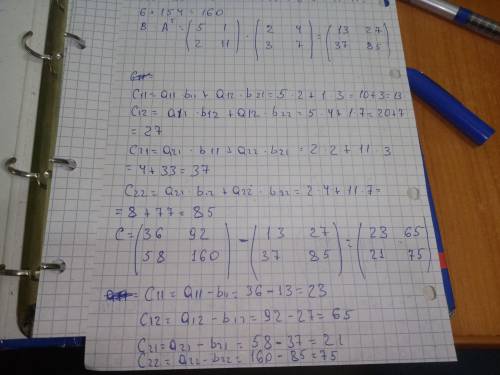 6 + 154 = 160
B A² = (5 1) · (2 4) = (13 27)
(2 11) (3 7) (37 85)
C11 = a11 b11 + a12 · b21 = 5 · 2 + 1 · 3 = 10 + 3 = 13
C12 = a11 · b12 + a12 · b22 = 5 · 4 + 1 · 7 = 20 + 7
= 27
C21 = a21 · b11 + a22 · b21 = 2 · 2 + 11 · 3
= 4 + 33 = 37
C22 = a21 · b12 + a22 · b22 = 2 · 4 + 11 · 7 =
= 8 + 77 = 85
C = (36 92) - (13 27) = (23 65)
(58 160) (37 85) (21 75)
= C11 = a11 - b11 = 36 - 13 = 23
C12 = a12 - b12 = 92 - 27 = 65
C21 = a21 - b21 = 58 - 37 = 21
C22 = a22 - b22 = 160 - 85 = 75